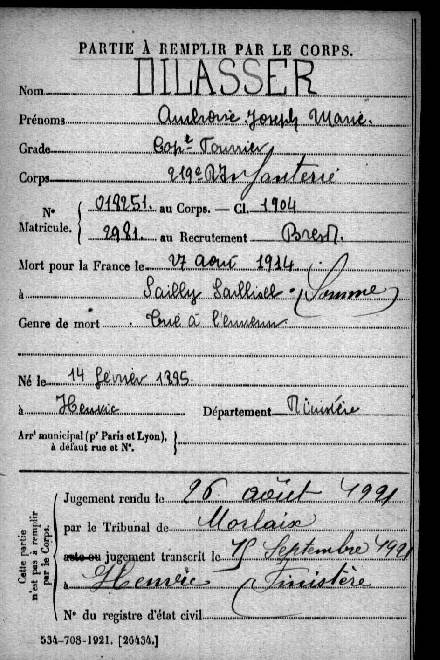 PARTIE À REMPLIR PAR LE CORPS.
Nom DILASSER
Prénoms Ambroise Joseph Marie.
Grade Capl Fourrier
Corps 219e R Infanterie
No Matricule. { 018251. au Corps. — Cl. 1904
2981. au Recrutement Brest.
Mort pour la France le 27 août 1914
à Sailly Saillisel (Somme)
Genre de mort Tué à l'ennemi
Né le 14 février 1885
à Henvic Département Finistère
Arrt municipal (pr Paris et Lyon), à défaut rue et No. }
Cette partie n'est pas à remplir par le Corps.
Jugement rendu le 26 août 1921
par le Tribunal de Morlaix
acte ou jugement transcrit le 15 Septembre 1921
à Henvic (Finistère
No du registre d'état civil
534-708-1921. [26434.]